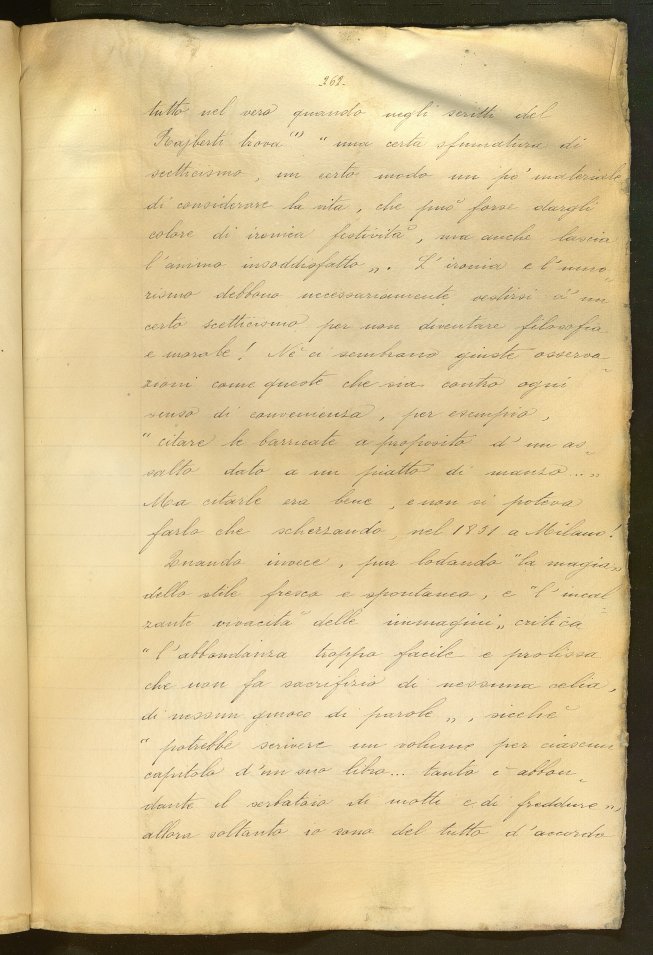 262.
tutto nel vero quando negli scritti del
Rajberti trova (1) " una certa sfumatura di
scetticismo, un certo modo un po' materiale
di considerare la vita, che può forse dargli
colore di ironica festività, ma anche lascia
l'animo insoddisfatto ". L'ironia e l'umo-
rismo debbono necessariamente vestirsi d'un
certo scetticismo per non diventare filosofia
e morale! Nè ci sembrano giuste osserva-
zioni come queste che sia contro ogni
senso di convenienza, per esempio,
" citare le barricate a proposito d'un as-
salto dato a un piatto di manzo ... "
Ma citarle era bene, e non si poteva
farlo che scherzando, nel 1851 a Milano!
Quando invece, pur lodando " la magia "
dello stile fresco e spontaneo, e " l'incal-
zante vivacità delle immagini " critica
" l'abbondanza troppo facile e prolissa
che non fa sacrifizio di nessuna celia,
di nessun giuoco di parole ", sicchè
" potrebbe scrivere un volume per ciascun
capitolo d'un suo libro... tanto è abbon-
dante il serbatoio di motti e di freddure ",
allora soltanto io sono del tutto d'accordo